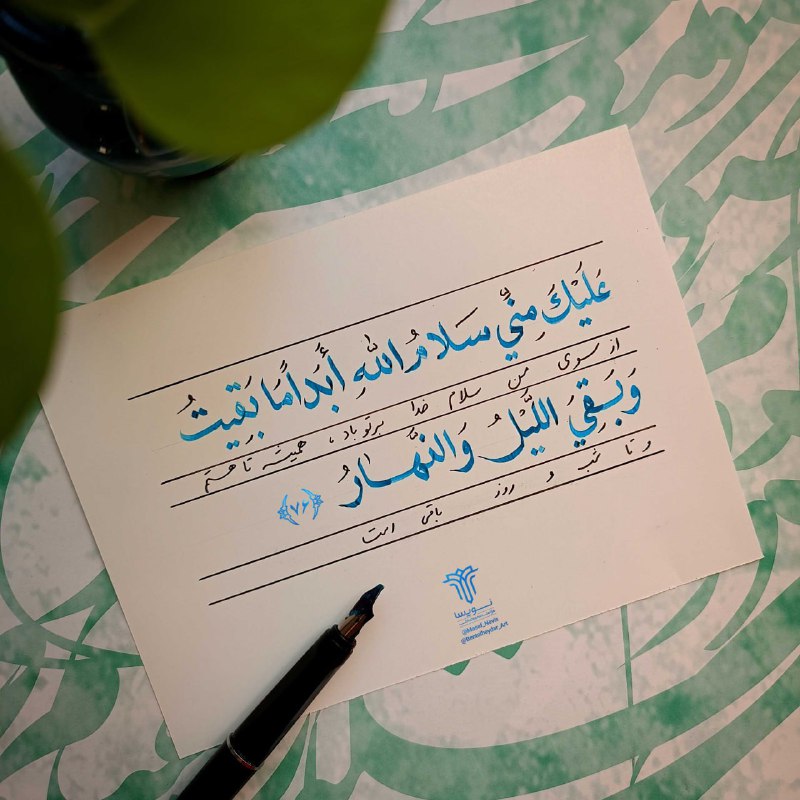 عَلَيْكَ مِنِّي سَلامُ اللَّهِ أَبَداً مَا بَقِيتُ
از سوی من سلام خدا بر تو باد، همیشه تا هستم
وَ بَقِيَ اللَّيْلُ وَ النَّهارُ ﴿۷۶﴾
و تا شب و روز باقی است
نویسا
@Mosaf_Nevis